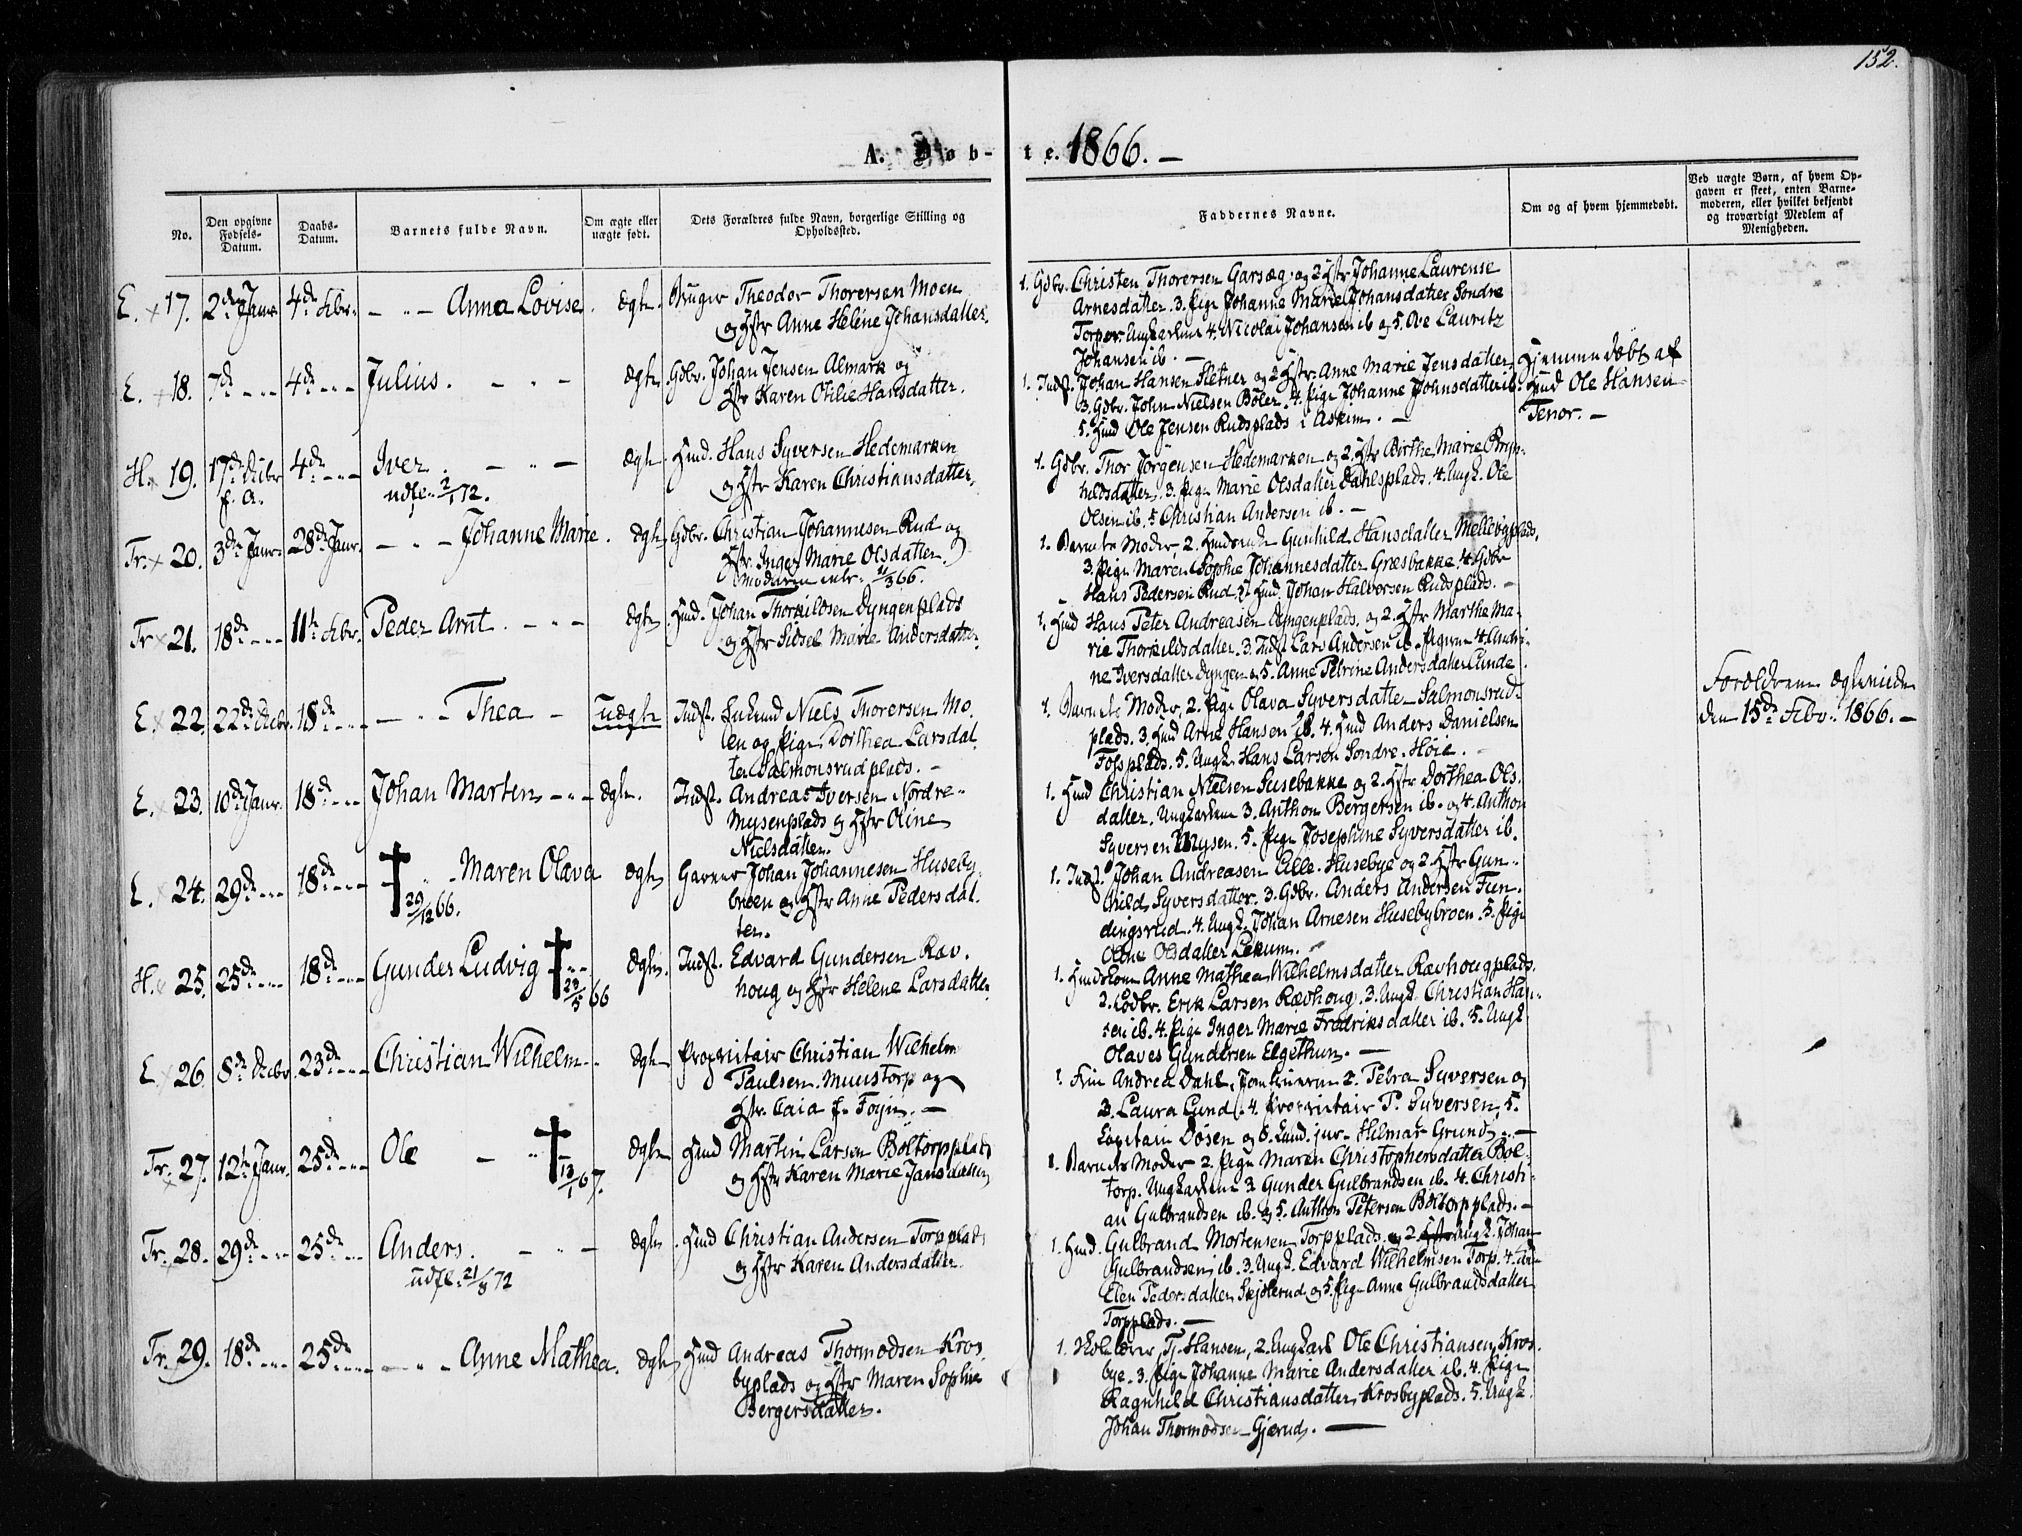 152.
A. Døb- te. 1866. —
No.
Den opgivne Fødsels-Datum.
Daabs-Datum.
Barnets fulde Navn.
Om ægte eller uægte født.
Dets Forældres fulde Navn, borgerlige Stilling og Opholdssted.
Faddernes Navne.
Om og af hvem hjemmedøbt.
Ved uægte Børn, af hvem Opgaven er skeet, enten Barnemoderen, eller hvilket bekjendt og troværdigt Medlem af Menigheden.
E. × 17. 2de Janr. 4de Febr. — „ — Anna Lovise. ægte. Bruger Theodor Thorersen Moen
og Hstr Anne Helene Johansdatter.
1. Gdbr. Christen Thorersen Garsæg og 2 Hstr Johanne Laurense
Arnesdatter. 3. Pige Johanne Marie Johansdatter Søndre
Torper. Ungkarlene 4. Nicolai Johansen ib og 5. Ove Lauritz
Johansen ib. —
E. × 18. 7de - - - 4de - - - Julius. — „ — ægte Gdbr. Johan Jensen Almark og
Hstr Karen Otilie Hansdatter.
1. Indst. Johan Hansen Sletner og 2 Hstr. Anne Marie Jensdatter
3. Gdbr. John Nielsen Bøler. 4. Pige Johanne Johnsdatter ib.
5. Hmd Ole Jensen Rudsplads i Askim. —
Hjemmedøbt af
Hmd Ole Hansen
Tenor. —
H. × 19. 17de Decbr 4de - - - Iver. — „ — ægte Hmd. Hans Syversen Hedemarken
f. A. udfl. 2/1 72. og Hstr Karen Christiansdatter.
1. Gdbr. Thor Jørgensen Hedemarken og 2. Hstr Birthe Marie Bryn-
hildsdatter. 3. Pige Marie Olsdatter Dahlsplads. 4. Ungk. Ole
Olsen ib. 5 Christian Andersen ib. —
Tr. × 20. 3die Janr. 28de Janr. — „ — Johanne Marie. ægte Gdbr. Christian Johannesen Rud og
Hstr. Inger Marie Olsdatter.
Moderen intr. 11/3 66.
1. Barnets Moder, 2. Gunhild Hansdatter Mellebyplads,
3. Pige Maren Sophie Johannesdatter Græsbakke 4. Gdbr
Hans Pedersen Rud, 5. Hmd. Johan Halvorsen Rudsplads. —
Tr × 21. 18de - - - 11te Febr. Peder Arnt. — - — ægte Hmd. Johan Thorkildsen Dyngenplads
og Hstr Sidsel Marie Andersdatter.
1. Hmd Hans Peter Andreasen Dyngenplads, og 2. Hstr Marthe Ma-
rie Thorkildsdatter. 3. Indst Lars Andersen ib. Pigerne 4. Andri-
ne Iversdatter Dyngen og 5. Anne Petrine Andersdatter Lunde.
E × 22. 22de Decbr. 18de - - - — „ — Thea — uægte Indst. Enkemd Niels Thorersen Mo-
en og Pige Dorthea Larsdat-
ter Salmonsrudplads. —
1. Barnets Moder, 2. Pige Olava Syversdatter Salmonsrud-
plads. 3. Hmd Arne Hansen ib. 4. Hmd Anders Danielsen
Fossplads. 5. Ungk Hans Larsen Søndre-Høie. —
Forældrene ægteviede
den 15de Febr. 1866. —
E. × 23. 10de Janr. 18de - - - Johan Marten — - — ægte. Indst. Andreas Iversen Nordre-
Mysenplads og Hstr Oline
Nielsdatter.
1. Hmd Christian Nielsen Susebakke og 2. Hstr Dorthea Ols-
datter. Ungkarlene 3. Anthon Bergersen ib. og 4. Anthon
Syversen Mysen. 5. Pige Josephine Syversdatter ib.
E. × 24. 29de - - - 18de - - - † „ Maren Olava ægte Garver Johan Johannesen Huseby-
29/12 66. broen og Hstr Anne Pedersdat-
ter.
1. Indst. Johan Andreasen Lille-Husebye og 2. Hstr Gun-
hild Syversdatter. 3. Gdbr. Anders Andersen Fun-
dingsrud. 4. Ungk. Johan Arnesen Husebybroen. 5. Pige
Oline Olsdatter Lekum.
H. × 25. 25de - - - 18de - - - Gunder Ludvig † - - ægte. Indst. Edvard Gundersen Rav-
23/5 66 houg og Hstr Helene Larsdatter.
1. Hmdskone Anne Mathea Wilhelmsdatter Rævhougplads.
2. Gdbr. Erik Larsen Rævhoug. 3. Ungk Christian Han-
sen ib. 4. Pige Inger Marie Fredriksdatter ib. 5. Ungk
Olaves Gundersen Elgethun. —
E. × 26. 8de Decbr. 23de - - - Christian Wilhelm - ægte Proprietair Christian Wilhelm
Paulsen Munstorp og
Hstr. Caia f. Foyn. —
1. Frue Andrea Dahl, Jomfruerne 2. Petra Syversen og
3. Laura Lund. 4. Proprietair P. Syversen, 5.
Capitain Døsen og 6. Cand. jur. Hilmar Grund. —
Tr. × 27. 12te Janr. 25de - - - Ole — „ † ægte Hmd Martin Larsen Boltorpplads
13/1 67. og Hstr Karen Marie Jansdatter
1. Barnets Moder 2. Pige Maren Christophersdatter Bol-
torp. Ungkarlene 3 Gunder Gulbrandsen ib. 4. Christi-
an Gulbrandsen ib. og 5. Anthon Petersen Boltorpplads. —
Tr. × 28. 29de - - - 25de - - - Anders. — „ — ægte Hmd Christian Andersen Torpplads
udfl. 21/8 72 og Hstr Karen Andersdatter.
1. Hmd. Gulbrand Mortensen Torpplads. og 2. Ungk. Johan
Gulbrandsen ib. 3. Ungk. Edvard Wilhelmsen Torp. 4.
Elen Pedersdatter Skjolerud og 5. Pige Anne Gulbrandsdatter
Torpplads. —
Tr. 29. 18de - - - 25de - - - — „ — Anne Mathea. ægte Hmd Andreas Thormodsen Kros-
byplads og Hstr Maren Sophie
Bergersdatter.
1. Skolelærer Tj. Hansen, 2. Ungkarl Ole Christiansen Kros-
bye. 3. Pige Johanne Marie Andersdatter ib. 4. Pige
Ragnhild Christiansdatter Krosbyplads. 5. Ungk.
Johan Thormodsen Gjerud. —